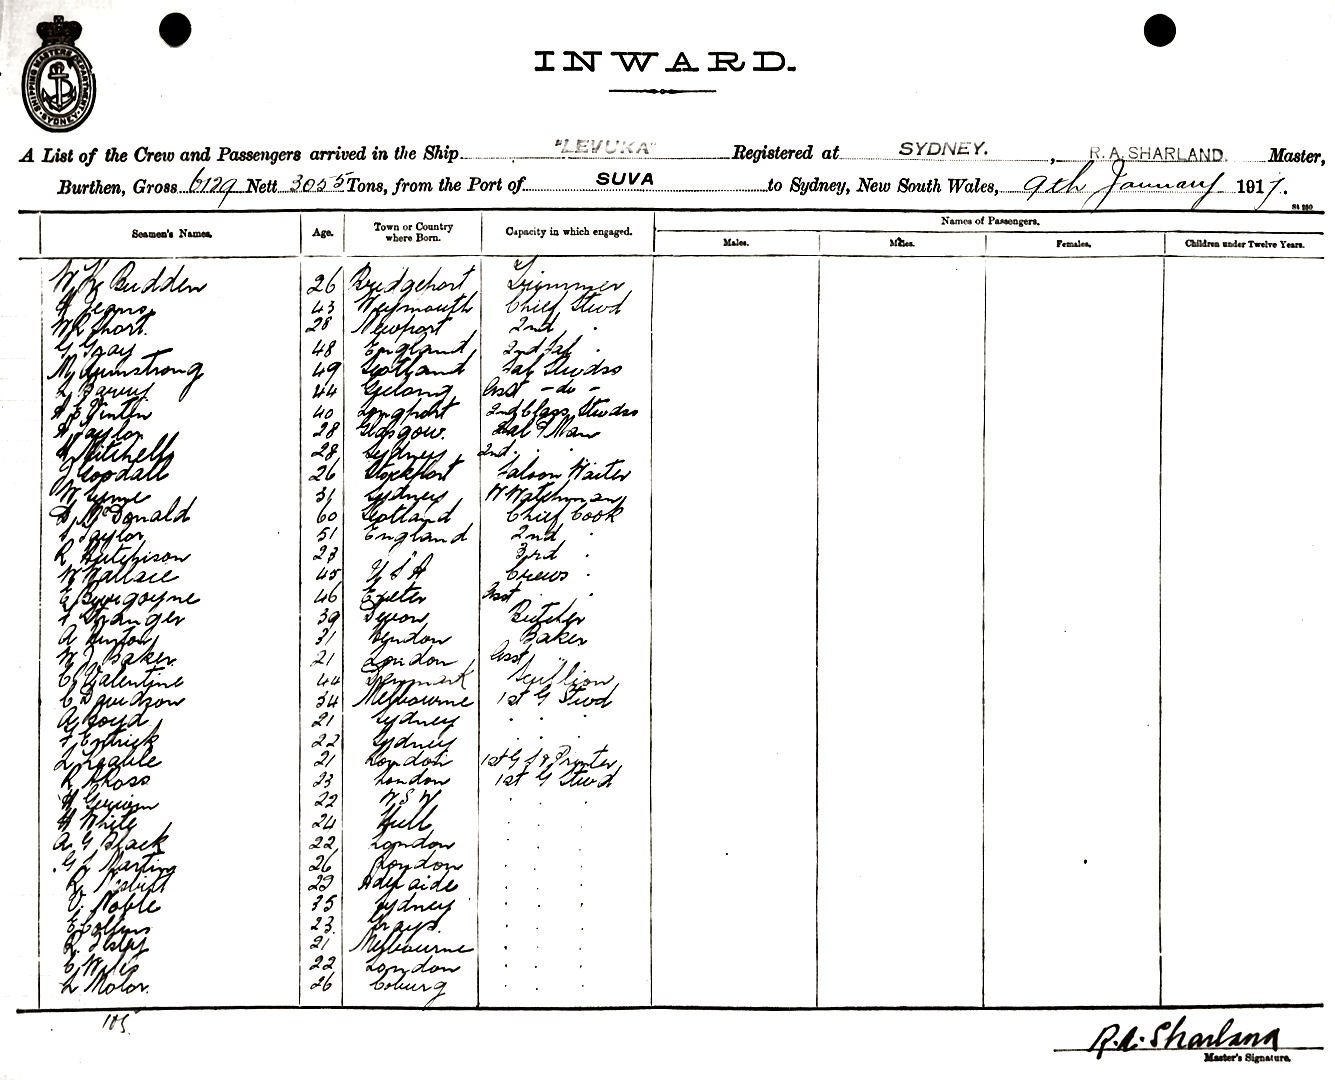 SHIPPING MASTERS DEPARTMENT SYDNEY
INWARD.
A List of the Crew and Passengers arrived in the Ship "LEVUKA" Registered at SYDNEY. , R. A. SHARLAND. Master,
Burthen, Gross 6129 Nett 3055 Tons, from the Port of SUVA to Sydney, New South Wales, 9th January 1917.
Seamen's Names. Age. Town or Country where Born. Capacity in which engaged. Names of Passengers.
Males. Males. Females. Children under Twelve Years.
W Budden 26 Bridgehort Trimmer
43 Weymouth Chief Stwd
W R Short. 28 Newport 2nd "
G Gray 48 England 2nd Sal "
M Armstrong 49 Scotland Sal Stwdss
44 Gelong Asst - do -
40 Longhort 2nd Class Stwdss
A Taylor 28 Glasgow. Man
A Mitchell 28 Sydney 2nd " "
J Goodall 26 Stockport Saloon Waiter
W 31 Sydney W Watchman
D McDonald 60 Scotland Chief Cook
Taylor 51 England 2nd "
R Hutchison 23 " 3rd "
W Wallace 45 U S A Crews "
E Bourgoyne 46 Exeter Asst " "
F Stranger 39 Devon Butcher
A 31 Baker
W J Baker 21 London Asst "
C Valentine 44 Denmark Scullion
C Davidson 34 Melbourne 1st G Stwd
A Boyd 21 Sydney " " "
F Entrick 22 Sydney " " "
21 London 1st G S & Printer
R A Ross 23 London 1st G Stwd
22 N S W " " "
H White 24 Hull " " "
A G Black 22 London " " "
G L Martin 26 London " " "
R Nisbitt 29 Adelaide " " "
V Noble 35 Sydney " " "
E Collins 23 Grays. " " "
R 21 Melbourne " " "
C 22 London " " "
L Molor. 26 Coburg " " "
105
R. A. Sharland
Master's Signature.